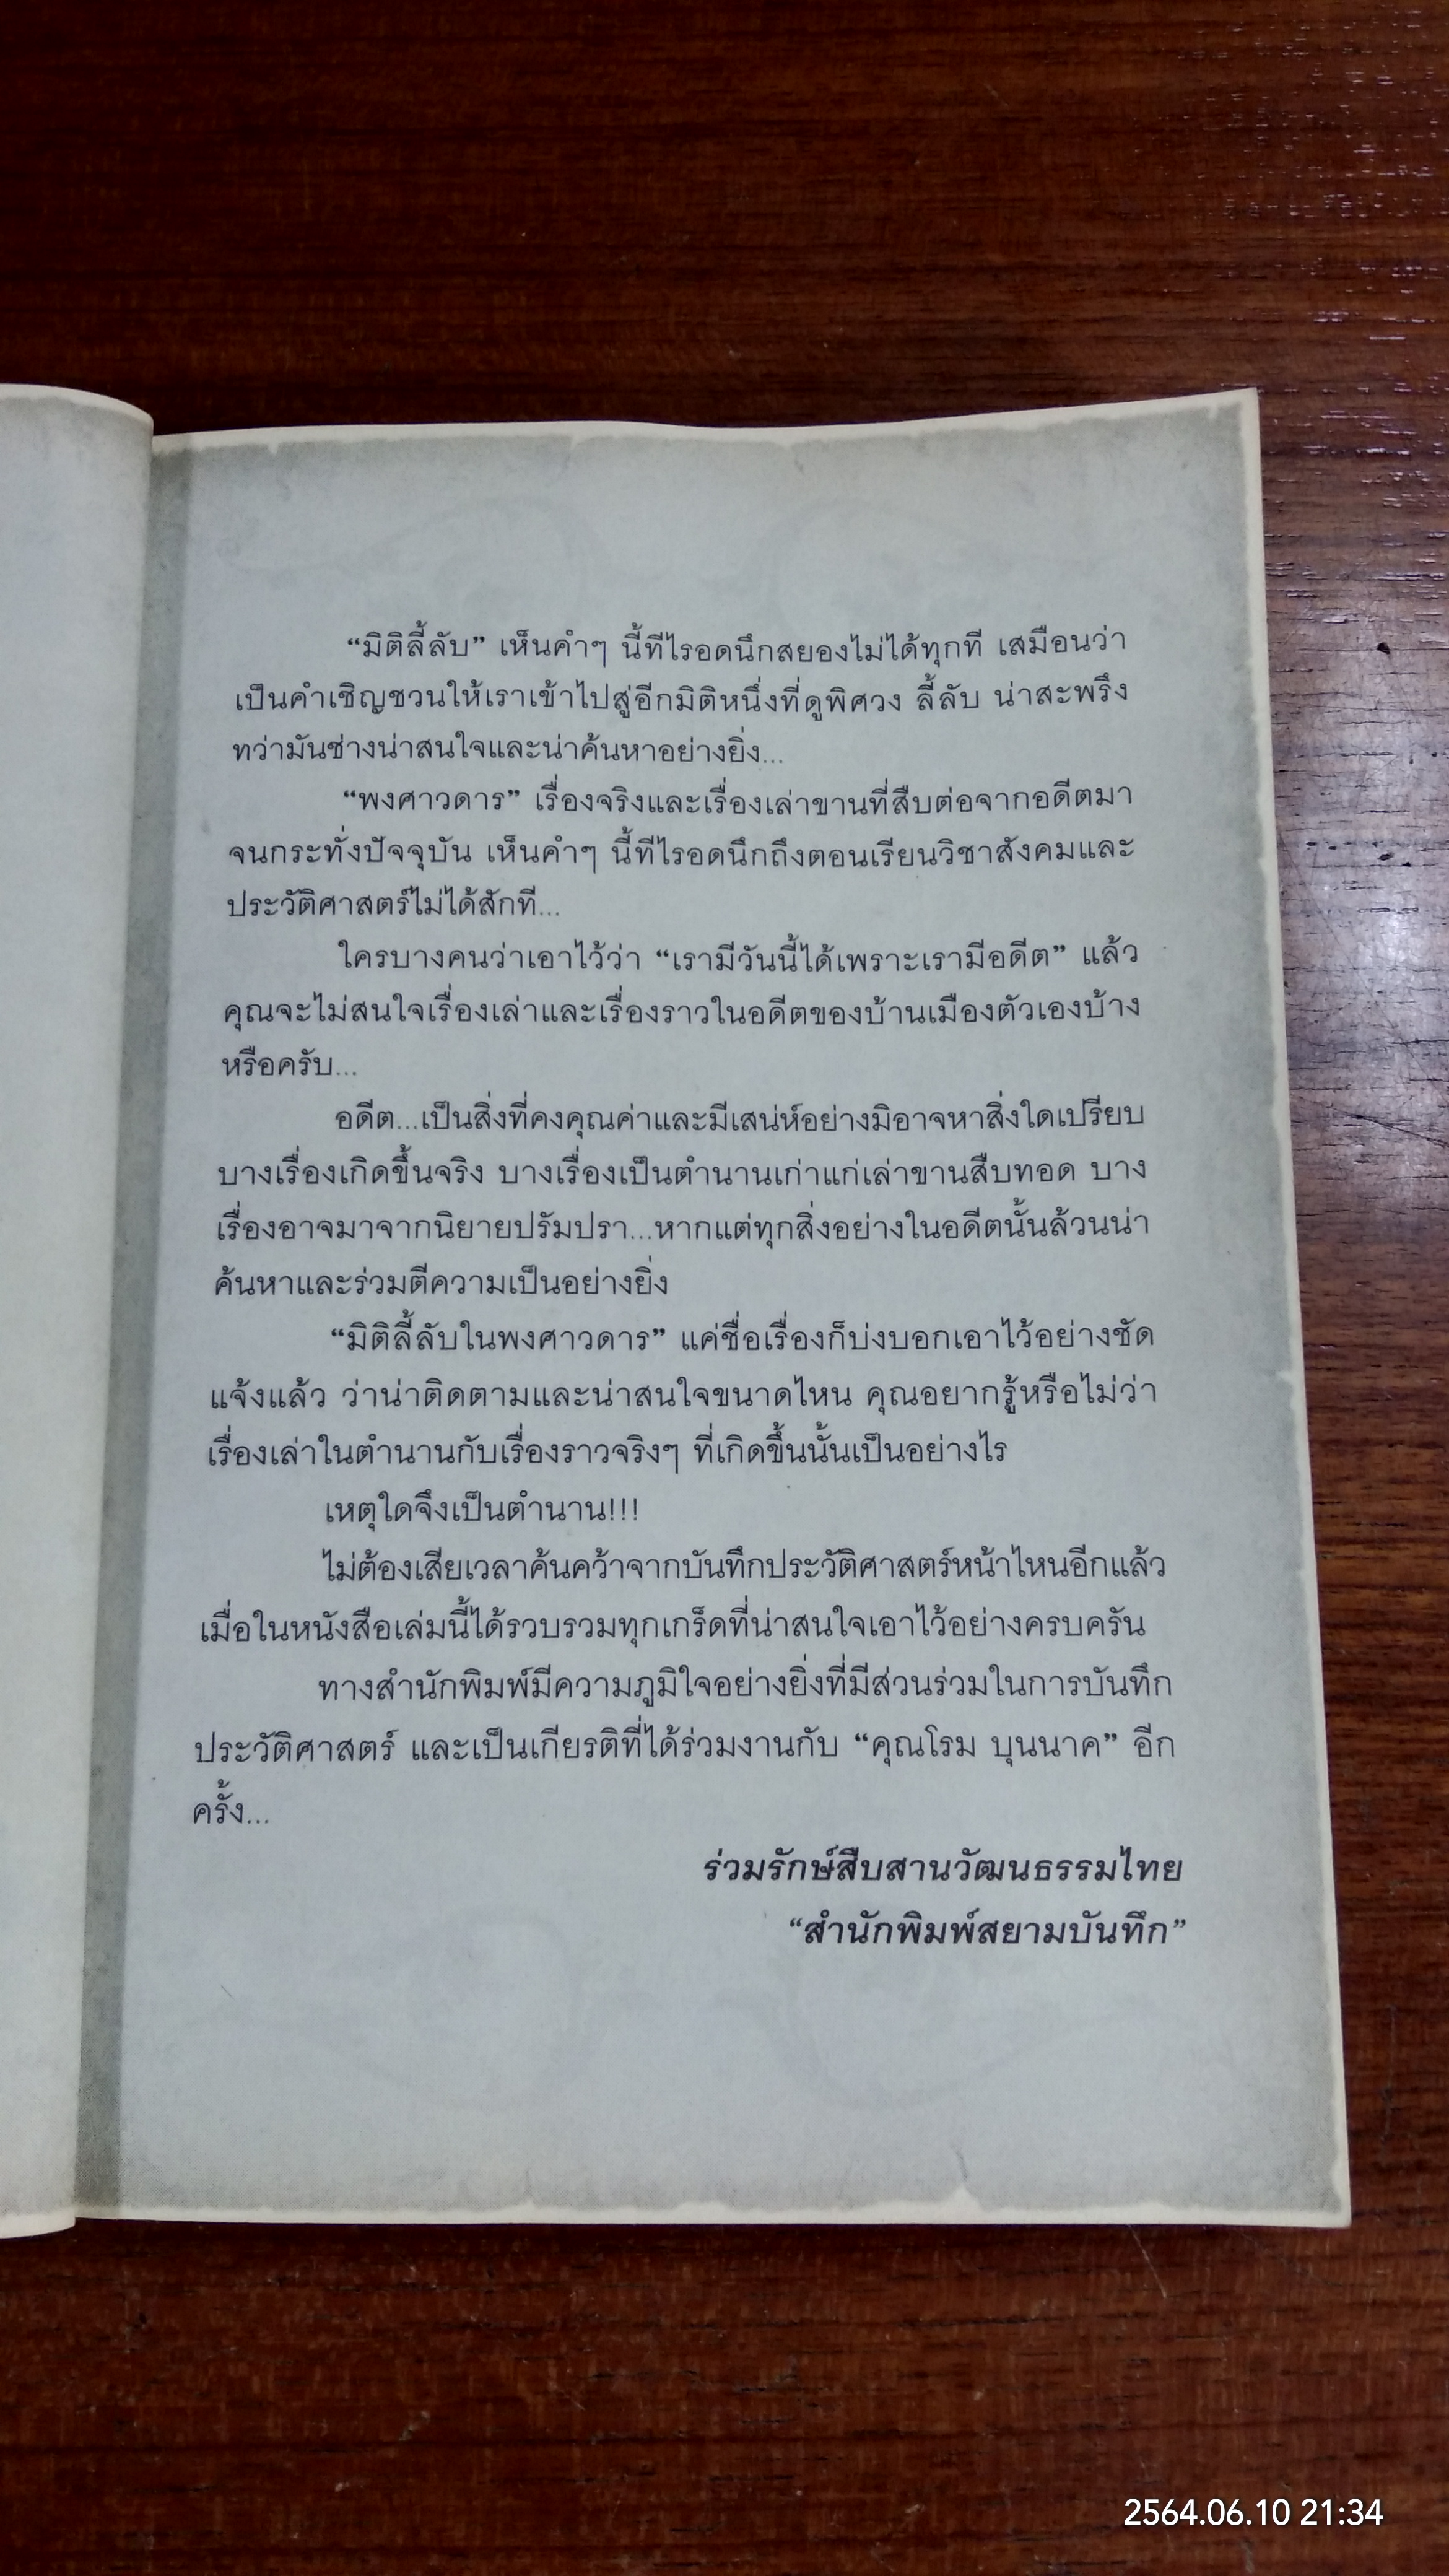 “มิติลี้ลับ” เห็นคำๆ นี้ทีไรอดนึกสยองไม่ได้ทุกที เสมือนว่า
เป็นคำเชิญชวนให้เราเข้าไปสู่อีกมิติหนึ่งที่ดูพิศวง ลี้ลับ น่าสะพรึง
ทว่ามันช่างน่าสนใจและน่าค้นหาอย่างยิ่ง...
“พงศาวดาร” เรื่องจริงและเรื่องเล่าขานที่สืบต่อจากอดีตมา
จนกระทั่งปัจจุบัน เห็นคำๆ นี้ทีไรอดนึกถึงตอนเรียนวิชาสังคมและ
ประวัติศาสตร์ไม่ได้สักที...
ใครบางคนว่าเอาไว้ว่า “เรามีวันนี้ได้เพราะเรามีอดีต” แล้ว
คุณจะไม่สนใจเรื่องเล่าและเรื่องราวในอดีตของบ้านเมืองตัวเองบ้าง
หรือครับ...
อดีต...เป็นสิ่งที่คงคุณค่าและมีเสน่ห์อย่างมิอาจหาสิ่งใดเปรียบ
บางเรื่องเกิดขึ้นจริง บางเรื่องเป็นตำนานเก่าแก่เล่าขานสืบทอด บาง
เรื่องอาจมาจากนิยายปรัมปรา...หากแต่ทุกสิ่งอย่างในอดีตนั้นล้วนน่า
ค้นหาและร่วมตีความเป็นอย่างยิ่ง
“มิติลี้ลับในพงศาวดาร” แค่ชื่อเรื่องก็บ่งบอกเอาไว้อย่างชัด
แจ้งแล้ว ว่าน่าติดตามและน่าสนใจขนาดไหน คุณอยากรู้หรือไม่ว่า
เรื่องเล่าในตำนานกับเรื่องราวจริงๆ ที่เกิดขึ้นนั้นเป็นอย่างไร
เหตุใดจึงเป็นตำนาน!!!
ไม่ต้องเสียเวลาค้นคว้าจากบันทึกประวัติศาสตร์หน้าไหนอีกแล้ว
เมื่อในหนังสือเล่มนี้ได้รวบรวมทุกเกร็ดที่น่าสนใจเอาไว้อย่างครบครัน
ทางสำนักพิมพ์มีความภูมิใจอย่างยิ่งที่มีส่วนร่วมในการบันทึก
ประวัติศาสตร์ และเป็นเกียรติที่ได้ร่วมงานกับ “คุณโรม บุนนาค” อีก
ครั้ง...
ร่วมรักษ์สืบสานวัฒนธรรมไทย
“สำนักพิมพ์สยามบันทึก”
2564.06.10 21:34